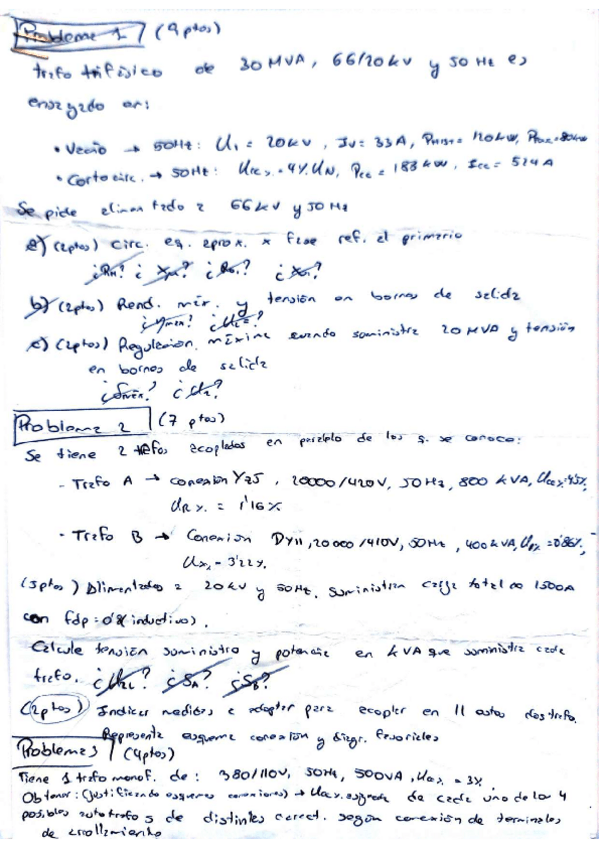 Problema 1 (9 ptos)
trafo trifásico de 30 MVA, 66/20 kV y 50 Hz es
ensayado en:
• Vacío → 50Hz: U₁ = 20kV, Iv = 33A, PHIST = 120kW, = 80kW
• Cortocirc. → 50Hz: Ucc% = 4% UN, Pcc = 183 kW, Icc = 524 A
Se pide alimentado a 66kV y 50Hz
a) (2ptos) Circ. eq. aprox. x fase ref. al primario
b) (2ptos) Rend. máx. y tensión en bornes de salida
c) (2ptos) Regulación máxima cuando suministra 20 MVA y tensión
en bornes de salida
Problema 2 (7 ptos)
Se tiene 2 trafos acoplados en paralelo de los q. se conoce:
- Trafo A → conexión Yz5, 20000/420V, 50Hz, 800 kVA, Ucc%=4'5%,
UR% = 1'16%
- Trafo B → Conexión Dy11, 20000/410V, 50Hz, 400kVA, UR%=0'86%,
UX% = 3'22%
(5ptos) Alimentados a 20kV y 50Hz. Suministran carga total de 1500A
con fdp = 0'8 (inductivo).
Calcule tensión suministro y potencia en kVA que suministra cada
trafo. ¿SA? ¿SB?
(2ptos) Indicar medidas a adoptar para acoplar en // estos dos trafos.
Representa esquema conexión y diagr. fasoriales
Problema 3 (4ptos)
Tiene 1 trafo monof. de: 380/110V, 50Hz, 500VA, Ucc% = 3%
Obtener: (justificando esquemas conexiones) → Ucc% asignada de cada uno de los 4
posibles autotrafos de distintas caract. según conexión de terminales
de arrollamiento